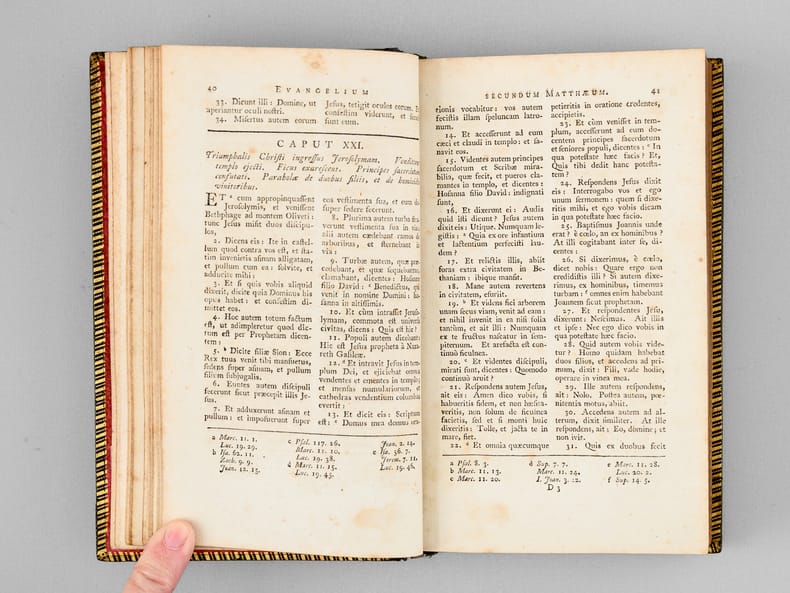 40 EVANGELIUM
33. Dicunt illi: Domine, ut
aperiantur oculi nostri.
34. Misertus autem eorum
Jesus, tetigit oculos eorum. Et
confestim viderunt, et secu
sunt eum.
CAPUT XXI.
Triumphalis Christi ingressus Jerosolymam. Venditores
templo ejecti. Ficus exarescens. Principes sacerdotum
confutati. Parabolæ de duobus filiis, et de homicidis
vinitoribus.
ET a cum appropinquassent
Jerosolymis, et venissent
Bethphage ad montem Oliveti:
tunc Jesus misit duos discipu-
los,
2. Dicens eis: Ite in castel-
lum quod contra vos est, et sta-
tim invenietis asinam alligatam,
et pullum cum ea: solvite, et
adducite mihi:
3. Et si quis vobis aliquid
dixerit, dicite quia Dominus his
opus habet: et confestim di-
mittet eos.
4. Hoc autem totum factum
est, ut adimpleretur quod dic-
tum est per Prophetam dicen-
tem:
5. b Dicite filiæ Sion: Ecce
Rex tuus venit tibi mansuetus,
sedens super asinam, et pullum
filium subjugalis.
6. Euntes autem discipuli
fecerunt sicut præcepit illis Je-
sus.
7. Et adduxerunt asinam et
pullum: et imposuerunt super
eos vestimenta sua, et eum de
super sedere fecerunt.
8. Plurima autem turba stra
verunt vestimenta sua in via:
alii autem cædebant ramos de
arboribus, et sternebant in
via:
9. Turbæ autem, quæ præ-
cedebant, et quæ sequebantur,
clamabant, dicentes: Hosanna
filio David: c Benedictus, qui
venit in nomine Domini: ho-
sanna in altissimis.
10. Et cùm intrasset Jero-
solymam, commota est universa
civitas, dicens: Quis est hic?
11. Populi autem dicebant:
Hic est Jesus propheta à Naza-
reth Galilææ.
12. d Et intravit Jesus in tem-
plum Dei, et ejiciebat omnes
vendentes et ementes in templo;
et mensas numulariorum, et
cathedras vendentium columbas
evertit:
13. Et dicit eis: Scriptum
est: e Domus mea domus ora-
a Marc. 11. 1.
Luc. 19. 29.
b Isa. 62. 11.
Zach. 9. 9.
Joan. 12. 15.
c Psal. 117. 26.
Marc. 11. 10.
Luc. 19. 38.
d Marc. 11. 15.
Luc. 19. 45.
Joan. 2. 14.
e Isa. 56. 7.
Jerem. 7. 11.
Luc. 19. 46.
SECUNDUM MATTHÆUM. 41
tionis vocabitur: vos autem
fecistis illam speluncam latro-
num.
14. Et accesserunt ad eum
cæci et claudi in templo: et sa-
navit eos.
15. Videntes autem principes
sacerdotum et Scribæ mira-
bilia, quæ fecit, et pueros cla-
mantes in templo, et dicentes:
Hosanna filio David: indignati
sunt,
16. Et dixerunt ei: Audis
quid isti dicunt? Jesus autem
dixit eis: Utique. Numquam le-
gistis: a Quia ex ore infantium
et lactentium perfecisti lau-
dem?
17. Et relictis illis, abiit
foras extra civitatem in Be-
thaniam: ibique mansit.
18. Mane autem revertens
in civitatem, esuriit.
19. b Et videns fici arborem
unam secus viam, venit ad eam:
et nihil invenit in ea nisi folia
tantùm, et ait illi: Numquam
ex te fructus nascatur in sem-
piternum. Et arefacta est con-
tinuò ficulnea.
20. c Et videntes discipuli,
mirati sunt, dicentes: Quomodo
continuò aruit?
21. Respondens autem Jesus,
ait eis: Amen dico vobis, si
habueritis fidem, et non hæsita-
veritis, non solum de ficulnea
facietis, sed et si monti huic
dixeritis: Tolle, et jacta te in
mare, fiet.
22. d Et omnia quæcumque
petieritis in oratione credentes,
accipietis.
23. Et cùm venisset in tem-
plum, accesserunt ad eum do-
centem principes sacerdotum
et seniores populi, dicentes: e In
qua potestate hæc facis? Et,
Quis tibi dedit hanc potesta-
tem?
24. Respondens Jesus dixit
eis: Interrogabo vos et ego
unum sermonem: quem si dixe-
ritis mihi, et ego vobis dicam
in qua potestate hæc facio.
25. Baptismus Joannis unde
erat? è cœlo, an ex hominibus?
At illi cogitabant inter se, di-
centes:
26. Si dixerimus, è cœlo,
dicet nobis: Quare ergo non
credidistis illi? Si autem dixe-
rimus, ex hominibus, timemus
turbam: f omnes enim habebant
Joannem sicut prophetam.
27. Et respondentes Jesu,
dixerunt: Nescimus. Ait illis
et ipse: Nec ego dico vobis in
qua potestate hæc facio.
28. Quid autem vobis vide-
tur? Homo quidam habebat
duos filios, et accedens ad pri-
mum, dixit: Fili, vade hodie,
operare in vinea mea.
29. Ille autem respondens,
ait: Nolo. Postea autem, pœ-
nitentia motus, abiit.
30. Accedens autem ad al-
terum, dixit similiter. At ille
respondens, ait: Eo, domine; et
non ivit.
31. Quis ex duobus fecit
a Psal. 8. 3.
b Marc. 11. 13.
c Marc. 11. 20.
d Sup. 7. 7.
Marc. 11. 24.
I. Joan. 3. 22.
e Marc. 11. 28.
Luc. 20. 2.
f Sup. 14. 5.
D 3